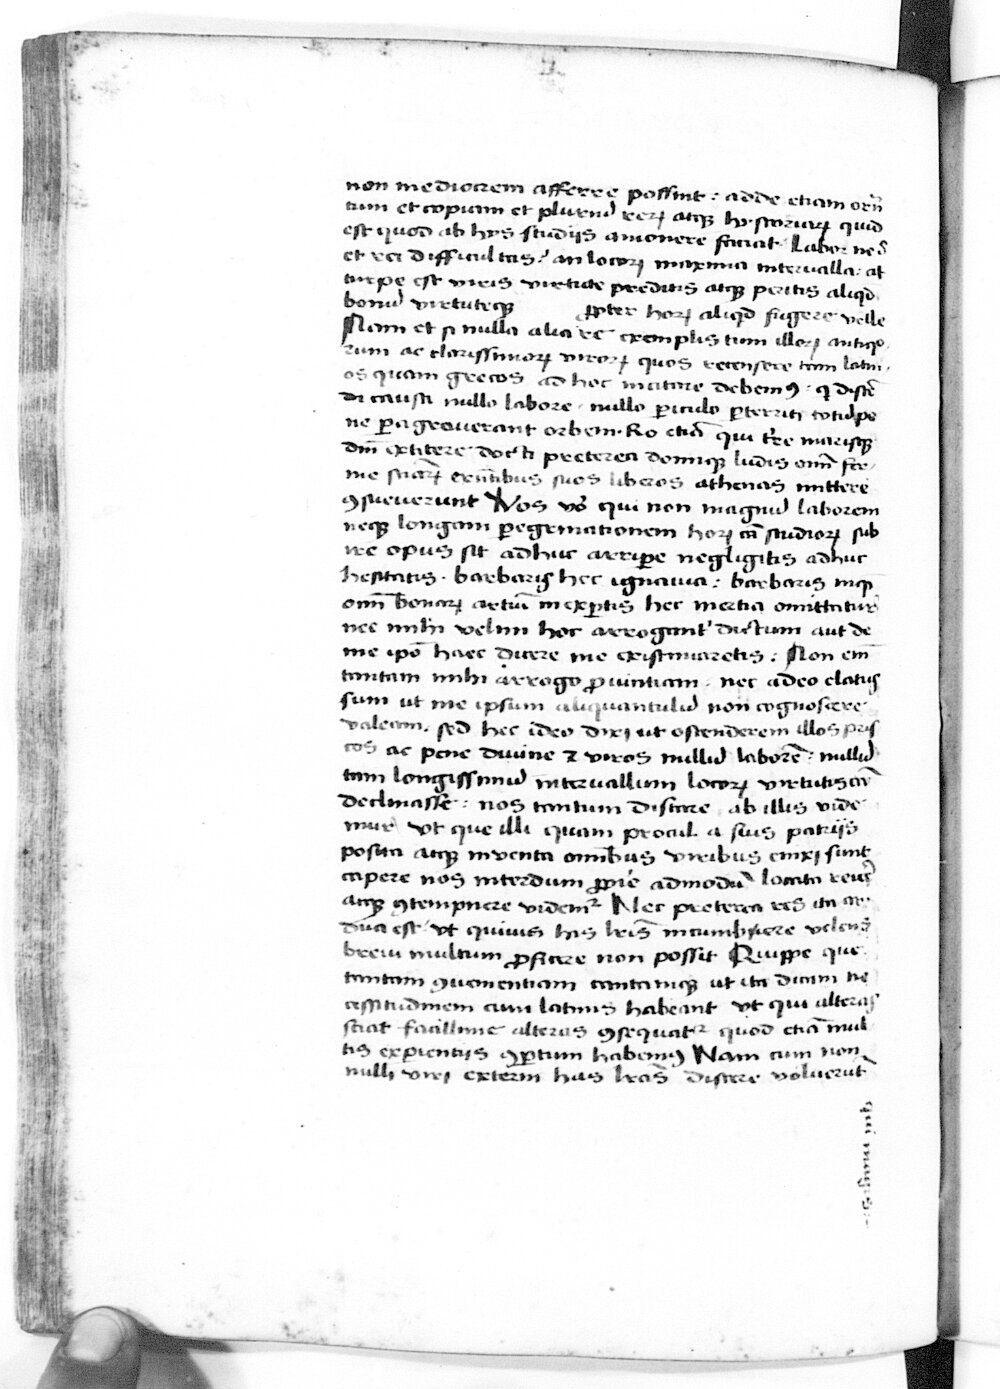 non mediocrem afferre possint : adde etiam orn̄
tum et copiam et plurimū rerꝝ atqꝫ hystoriarꝝ quid
est quod ab hys studiis amouere faciat Labor ne
et rei difficultas? an locorꝝ maxima interualla : at
turpe est viris virtute preditis atqꝫ peritis aliqd
bonū virtutēqꝫ ꝓpter horꝝ aliqd fugere velle
Nam et si nulla alia re exemplis tum illorꝝ antiquo
rum ac clarissimorꝝ virorꝝ quos recensere tam latin
os quam grecos ad hoc imitare debemꝰ : q̄ discē
di causa nullo labore nullo ꝑiculo ꝑterriti totū pe
ne ꝑagrauerant orbem. Ro etiā qui tr̄e marisqꝫ
dn̄i extitere docti preterea domiqꝫ ludis oīm fer
me sciarꝝ extātibus suos liberos athenas mittere
ꝯsueuerunt Vos vō qui non magnū laborem
neqꝫ longam ꝑegrinationem horꝝ cā studiorꝝ sub
ire opus sit adhuc arriꝑe negligitis adhuc
hesitatis . barbaris hec ignauia : barbaris inqꝫ
oīm bonarꝝ artiū inexꝑtis hec inertia omittatur
nec mihi velim hoc arroganter dictum aut de
me ipō haec dicere me existimaretis : Non em̄
tantam mihi arrogo ꝓuintiam . nec adeo elatus
sum ut me ipsum aliquantulū non cognoscere
valeam . sed hec ideo dixi ut ostenderem illos pris
cos ac pene diuine ⁊ viros nullū laborē : nullū
tam longissimū interuallum locorꝝ virtutis cā
declinasse : nos tantum discere ab illis vide
mur vt que illi quam procul a suis patriis
posita atqꝫ inuenta omībus viribus enixi sunt
capere nos interdum ꝓpe admodū locata reiic̄
atqꝫ ꝯtempnere videmr Nec preterea res ita ar
dua est vt quiuis his lr̄is incumbere volens
breui multum ꝓficere non possit Quippe que
tantam ꝯuenientiam tantamqꝫ ut ita dicam ne
cessitudinem cum latinis habeant vt qui alteras
sciat facillime alteras ꝯsequatr quod etiā mul
tis exꝑientiis ꝯꝑtum habemꝰ Nam cum non
nulli viri externi has lr̄as discere voluerūt